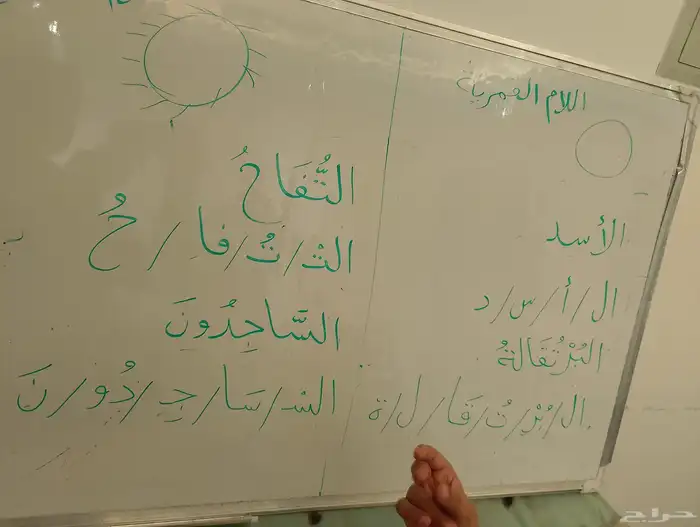 اللام القمرية
الأسد
ال/أ/س/د
البُرْتُقَالةُ
ال/بُرْ/تُ/قَا/ل/ة
التُّفَاحُ
التْ/تُ/فا/حُ
السَّاجِدُونَ
السْ/سَا/جِ/دُو/نَ
حراج